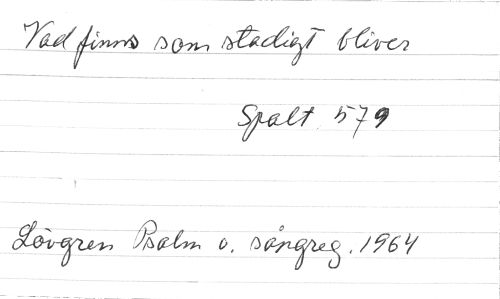 Vad finns som stadigt bliver
Spalt 579
Lövgren Psalm o. sångreg. 1964